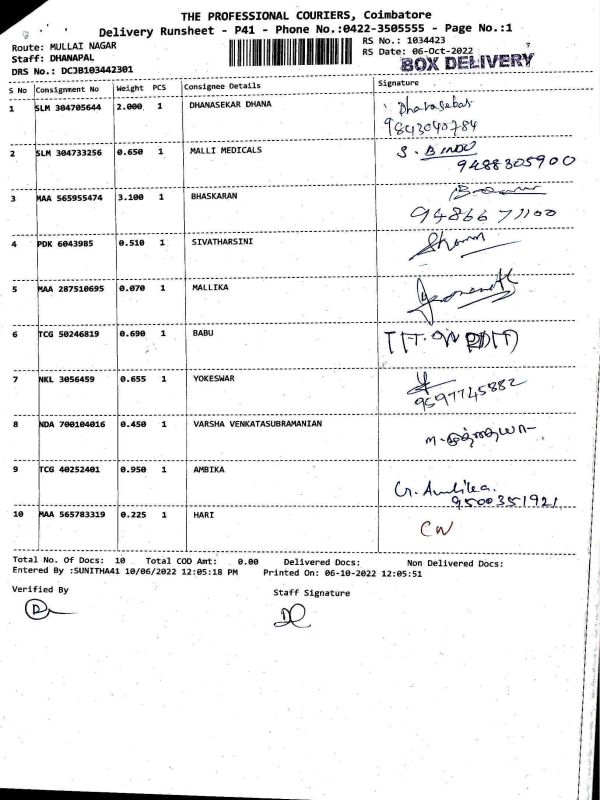 THE PROFESSIONAL COURIERS, Coimbatore
Delivery Runsheet - P41 - Phone No.:0422-3505555 - Page No.:1
Route: MULLAI NAGAR
Staff: DHANAPAL
DRS No.: DCJB103442301
RS No.: 1034423
RS Date: 06-Oct-2022
BOX DELIVERY
S No Consignment No Weight PCS Consignee Details Signature
1 SLM 304705644 2.000 1 DHANASEKAR DHANA Dhanasekar
9843040784
2 SLM 304733256 0.650 1 MALLI MEDICALS S. BINDU
9488305900
3 MAA 565955474 3.100 1 BHASKARAN
9486671100
4 PDK 6043985 0.510 1 SIVATHARSINI
5 MAA 287510695 0.070 1 MALLIKA
6 TCG 50246819 0.690 1 BABU
7 NKL 3056459 0.655 1 YOKESWAR
9597745882
8 NDA 700104016 0.450 1 VARSHA VENKATASUBRAMANIAN
9 TCG 40252401 0.950 1 AMBIKA G. Ambika.
9500351921
10 MAA 565783319 0.225 1 HARI CW
Total No. Of Docs: 10 Total COD Amt: 0.00 Delivered Docs: Non Delivered Docs:
Entered By :SUNITHA41 10/06/2022 12:05:18 PM Printed On: 06-10-2022 12:05:51
Verified By Staff Signature